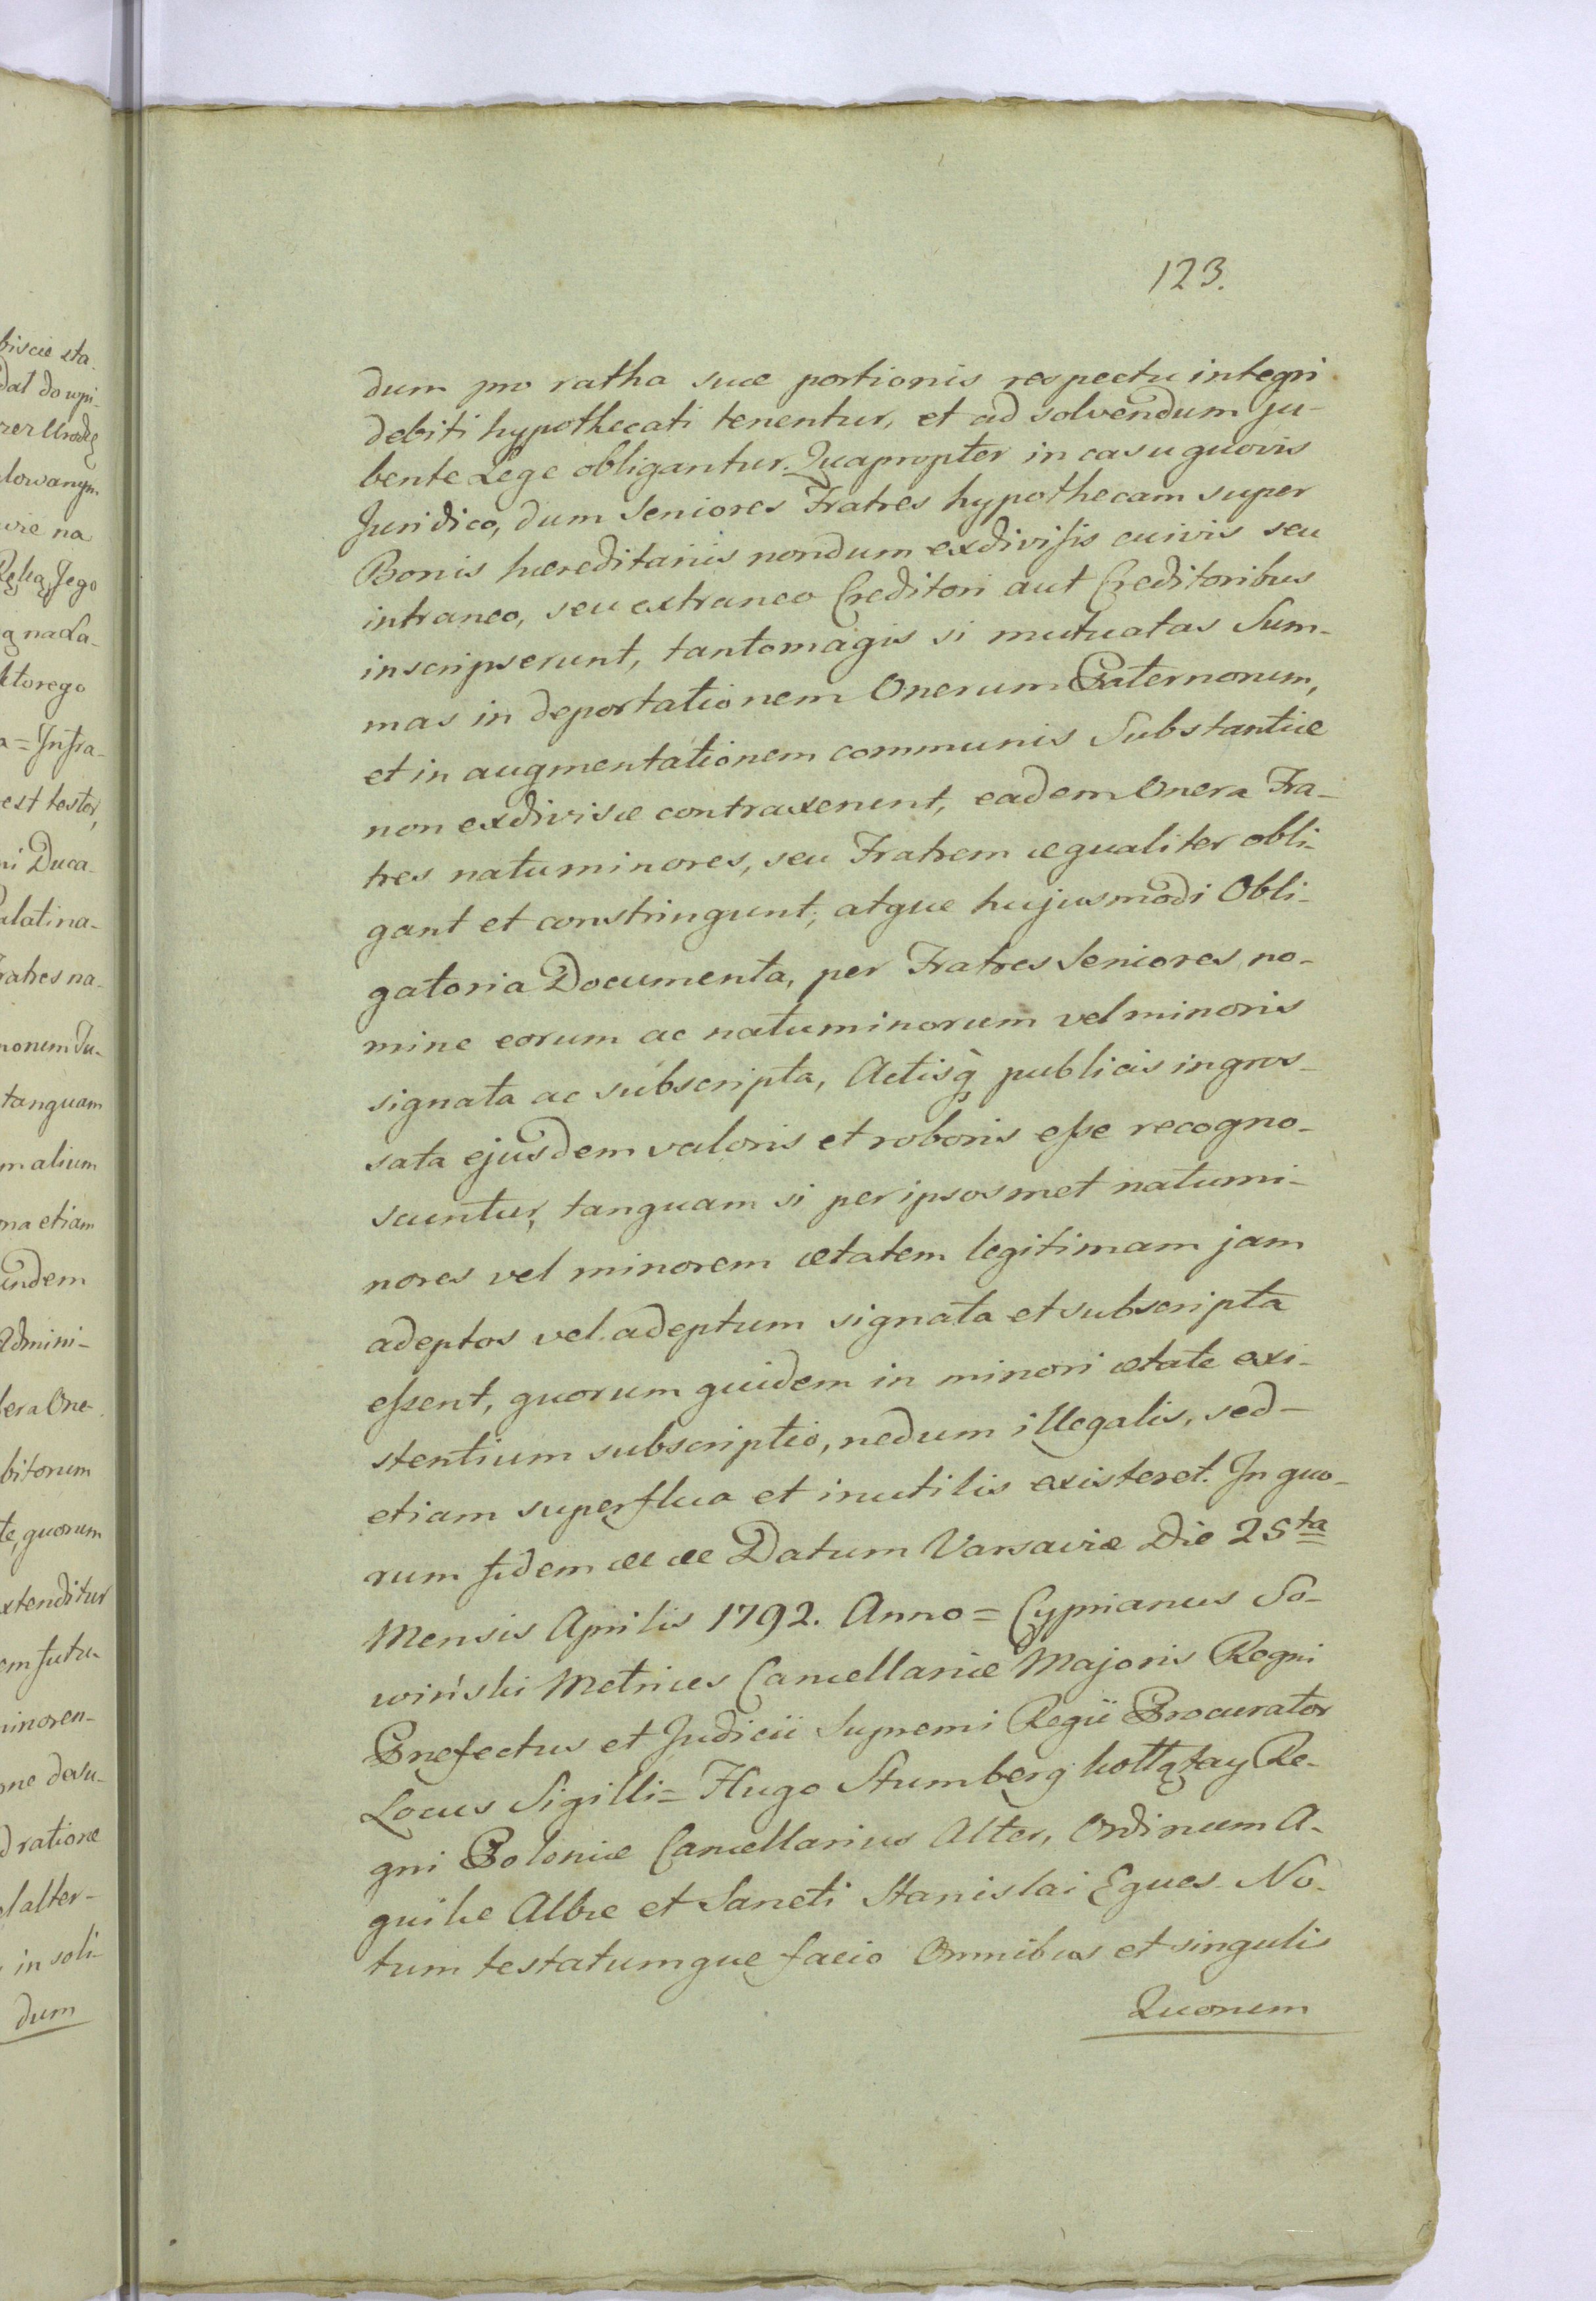 123.
dum pro ratha suæ portionis respectu integri
debiti hypothecati tenentur, et ad solvendum ju-
bente Lege obligantur. Quapropter in casu quovis
Juridico, dum Seniores Fratres hypothecam super
Bonis hæreditariis nondum exdivisis cuivis seu
intraneo, seu extraneo Creditori aut Creditoribus
inscripserunt, tantomagis si mutuatas Sum-
mas in deportationem Onerum Paternorum,
et in augmentationem communis Substantiæ
non exdivisæ contraxerunt, eadem Onera Fra-
tres natuminores, seu Fratrem æqualiter obli-
gant et constringunt; atque hujusmodi Obli-
gatoria Documenta, per Fratres Seniores, no-
mine eorum ac natuminorum vel minoris
signata ac subscripta, Actisq̀ publicis ingros-
sata ejusdem valoris et roboris esse recogno-
scuntur, tanquam si per ipsosmet natumi-
nores vel minorem ætatem legitimam jam
adeptos vel adeptum signata et subscripta
essent, quorum quidem in minori ætate exi-
stentium subscriptio, nedum illegalis, sed-
etiam superflua et inutilis existeret. In quo-
rum fidem æ æ Datum Varsaviæ Die 25ta
Mensis Aprilis 1792. Anno = Cyprianus So-
wiński Metrices Cancellariæ Majoris Regni
Præfectus et Judicii Supremi Regii Procurator
Locus Sigilli = Hugo Stumberg Kołłątay Re-
gni Poloniæ Cancellarius Alter, Ordinum A-
quilæ Albæ et Sancti Stanislai Eques. No-
tum testatumque facio Omnibus et singulis
Quorum
biscie sta.
dał do wpi-
na
Jego
a na La-
ktorego
a = Infra-
est testor,
ni Duca-
alatina-
ratres na-
tanquam
m alium
na etiam
Admini-
era One-
bitorum
te, quorum
xtenditur
em futu-
inoren-
d ratione
l alter-
in soli-
dum